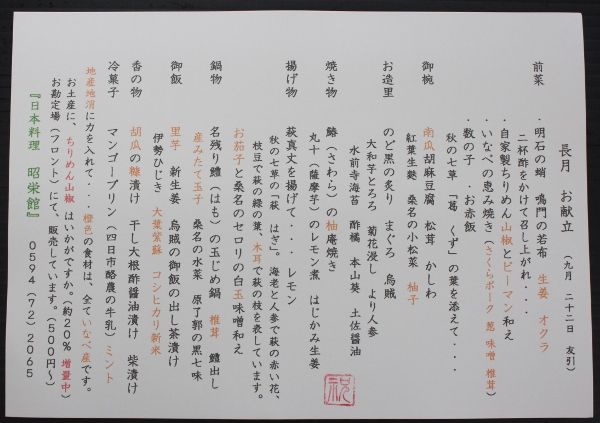 長月 お献立 (九月 二十二日 友引)
前菜 ・明石の蛸 鳴門の若布 生姜 オクラ
二杯酢をかけて召し上がれ・・・
・自家製ちりめん山椒とピーマン和え
・いなべの恵み焼き(さくらポーク 葱 味噌 椎茸)
・数の子 ・お赤飯
秋の七草 「葛 くず」の葉を添えて・・・
御椀 南瓜胡麻豆腐 松茸 かしわ
紅葉生麩 桑名の小松菜 柚子
お造里 のど黒の炙り まぐろ 烏賊
大和芋とろろ 菊花浸し より人参
水前寺海苔 酢橘 本山葵 土佐醤油
焼き物 鰆(さわら)の柚庵焼き
丸十(薩摩芋)のレモン煮 はじかみ生姜
揚げ物 萩真丈を揚げて・・・ レモン
秋の七草の「萩 はぎ」。海老と人参で萩の赤い花、
枝豆で萩の緑の葉、木耳で萩の枝を表しています。
お茄子と桑名のセロリの白玉味噌和え
鍋物 名残り鱧(はも)の玉じめ鍋 椎茸 鱧出し
産みたて玉子 桑名の水菜 原了郭の黒七味
御飯 里芋 新生姜 烏賊の御飯の出し茶漬け
伊勢ひじき 大葉紫蘇 コシヒカリ新米
香の物 胡瓜の糠漬け 干し大根酢醤油漬け 柴漬け
冷菓子 マンゴープリン(四日市酪農の牛乳)ミント
地産地消に力を入れて・・・橙色の食材は、全ていなべ産です。
お土産に、ちりめん山椒はいかがですか。(約20% 増量中)
お勘定場(フロント)にて、販売しています。(500円~)
『日本料理 昭栄館』 0594(72)2065
祝